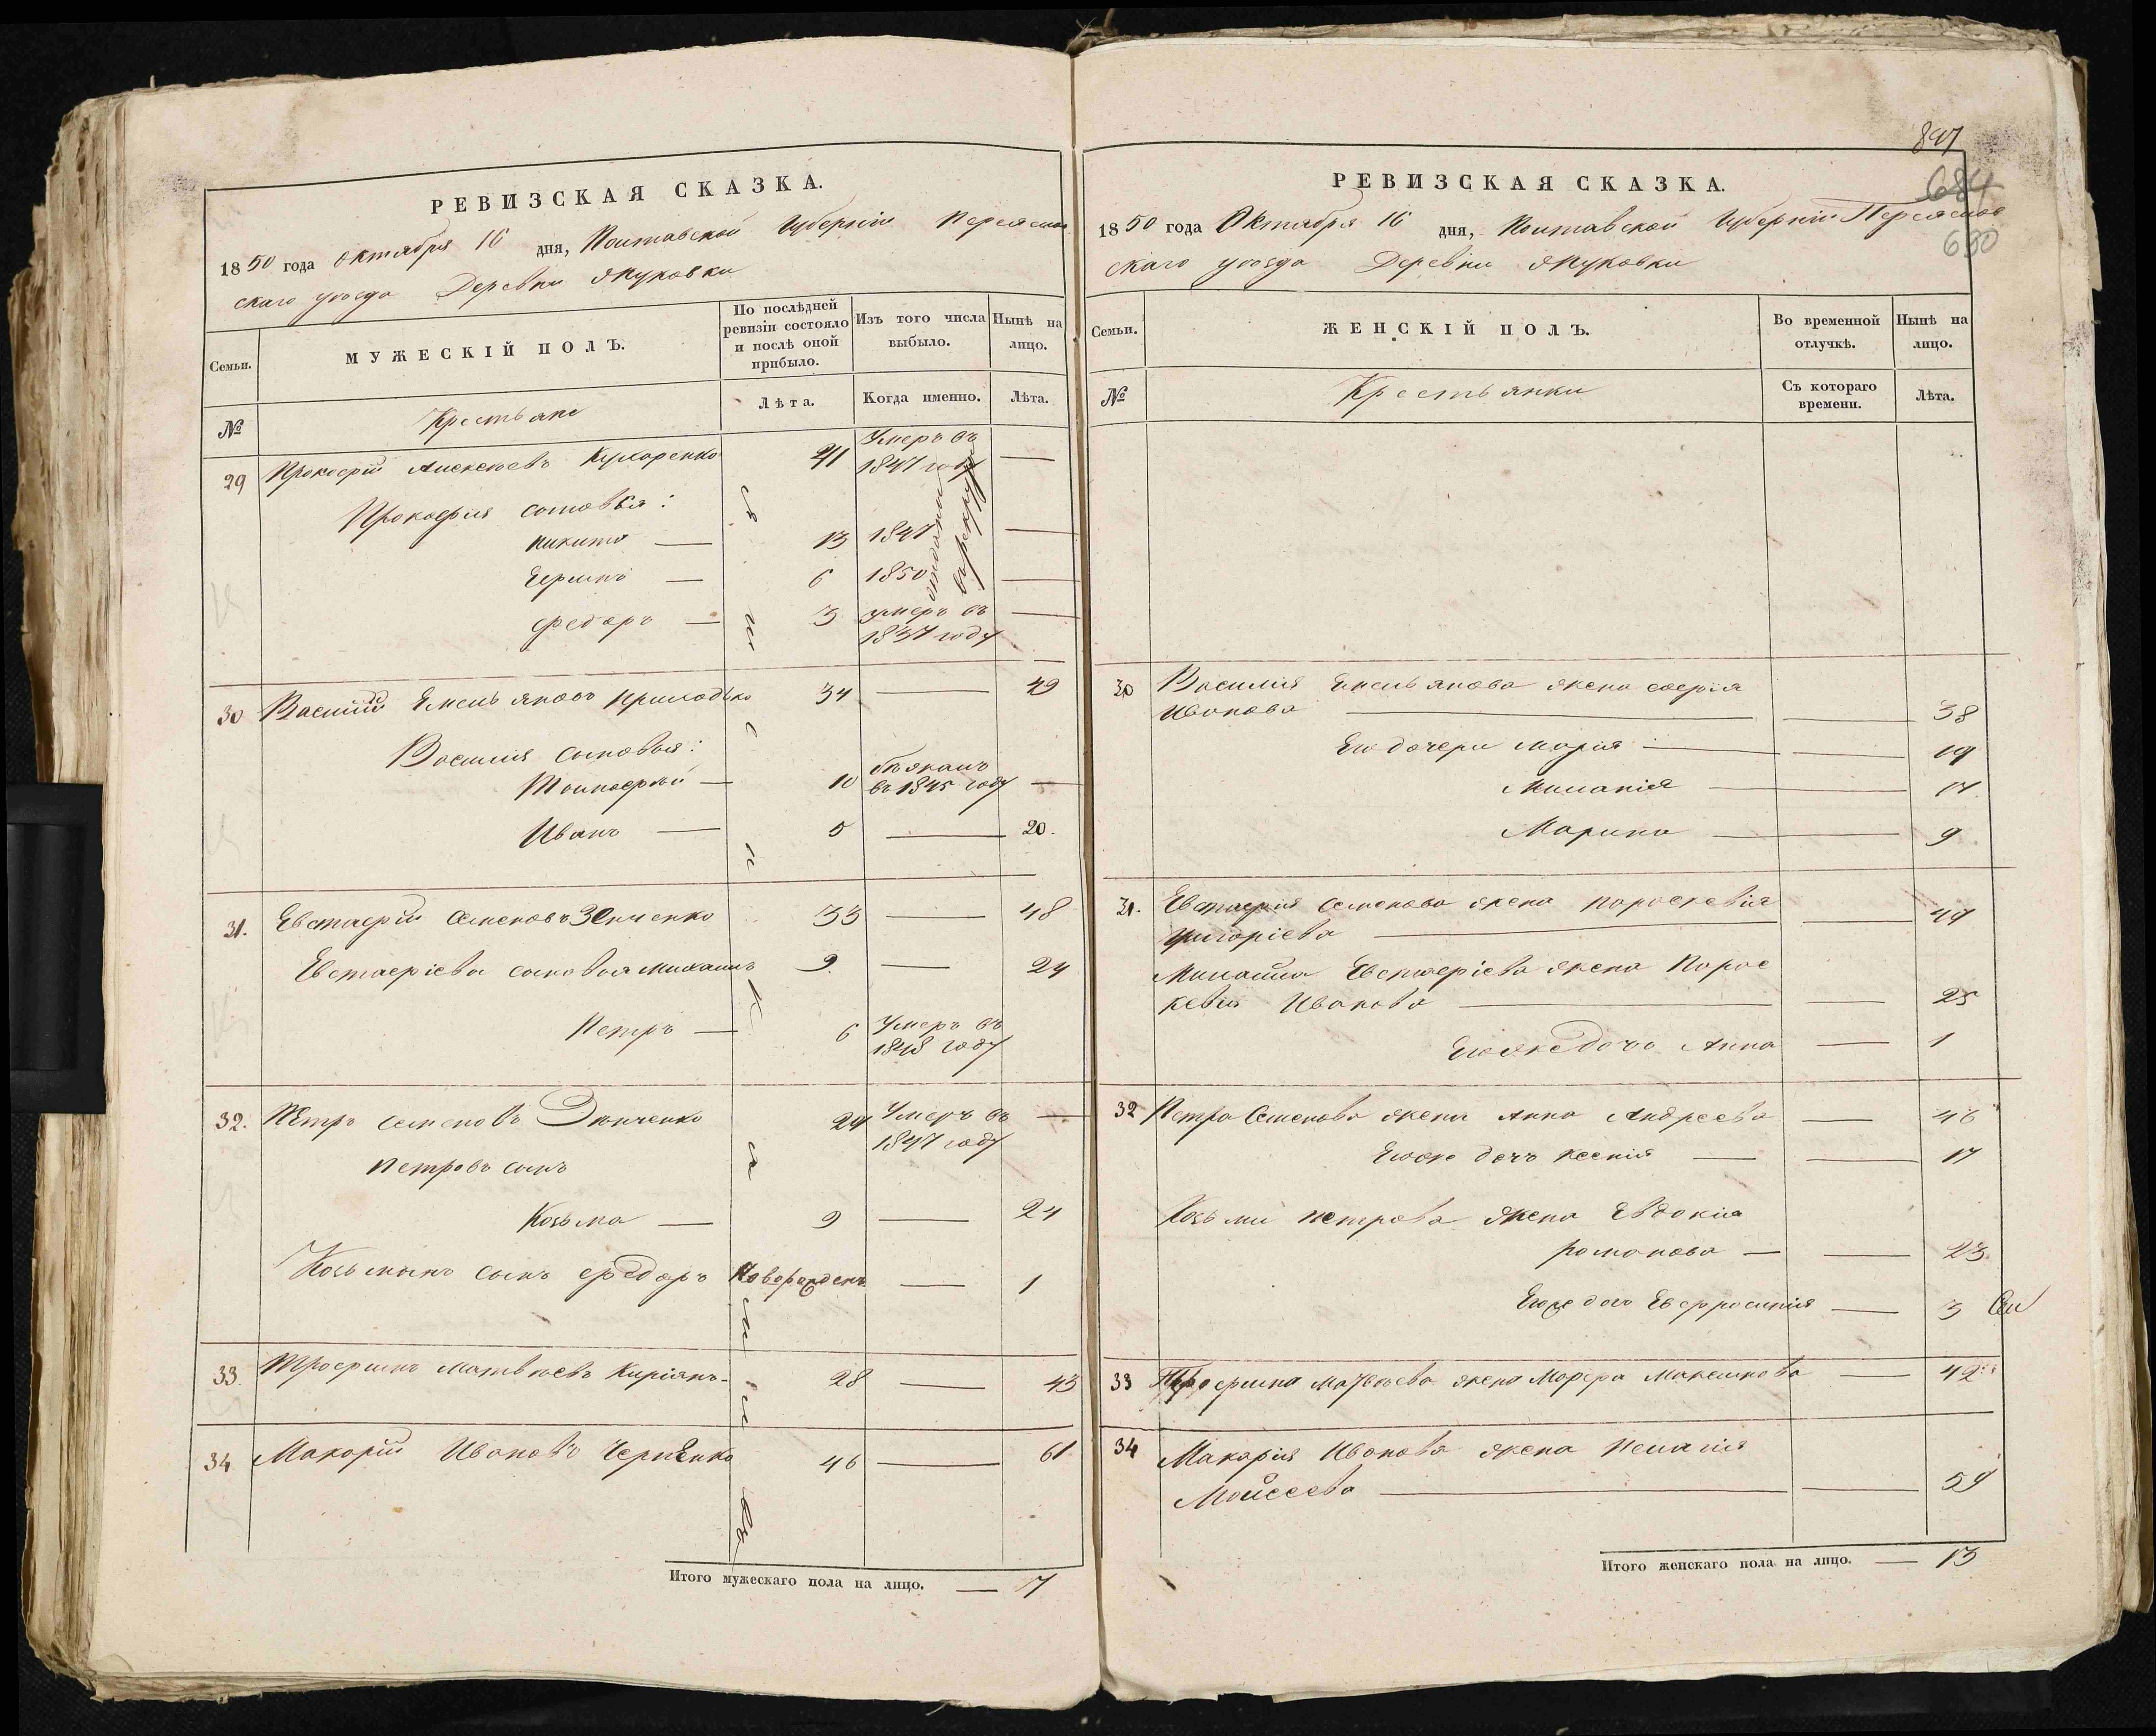 РЕВИЗСКАЯ СКАЗКА.
1850 года Октября 16 дня, Полтавской Губерніи Переяслав
скаго уезда Деревни
Семьи.
МУЖЕСКІЙ ПОЛЪ.
По послѣдней ревизіи состояло и послѣ оной прибыло.
Изъ того числа выбыло.
Нынѣ на лицо.
№
Крестьяне
Лѣта.
Когда именно.
Лѣта.
29 Прокофій Алексеевъ 41 Умеръ въ 1847 году —
Прокофія сыновья:
Никита — 13 1847 отданы въ рекруты —
6 1850 —
Федоръ — 3 умеръ въ 1837 году —
30 Василій Емельяновъ Приходько 34 — 49
Василія сыновья:
10 бежалъ въ 1845 году —
Иванъ — 5 — 20.
31. Евстафій Семеновъ Зенченко 33 — 48
Евстафіева сыновья Михаилъ 9. — 24
Петръ — 6 Умеръ въ 1848 году
32. Петръ Семеновъ Зенченко 29 Умеръ въ 1847 году —
Петровъ сынъ
Козьма — 9 — 24
Козьминъ сынъ Федоръ Новорожденъ — 1
33. Трофимъ Матвеевъ Киріянъ 28 — 43
34 Макарій Ивановъ Черненко 46 — 61
Итого мужескаго пола на лицо. — 7
847
684
650
РЕВИЗСКАЯ СКАЗКА.
1850 года Октября 16 дня, Полтавской Губерніи Переяслав
скаго уезда Деревни
Семьи.
ЖЕНСКІЙ ПОЛЪ.
Во временной отлучкѣ.
Нынѣ на лицо.
№
Крестьянки
Съ котораго времени.
Лѣта.
30 Василія Емельянова жена Софія
Иванова — — 38
Его дочери Марія — — 19
Миланія — 17
Марина — 9
31. Евстафія Семенова жена Параскевія
Григоріева — — 49
Михаила Евстафіева жена Парас
кевія Иванова — — 25
Его же дочь Анна — 1
32 Петра Семенова жена Анна Андреева — 46
Его же дочь Ксенія — — 17
Козьми Петрова жена Евдокія
Романова — — 23.
Его же дочь Евфросинія — 3
33 Трофима Матвеева жена Марфа Максимова — 42
34 Макарія Иванова жена Пелагія
Мойсеева — — 59
Итого женскаго пола на лицо. — 13